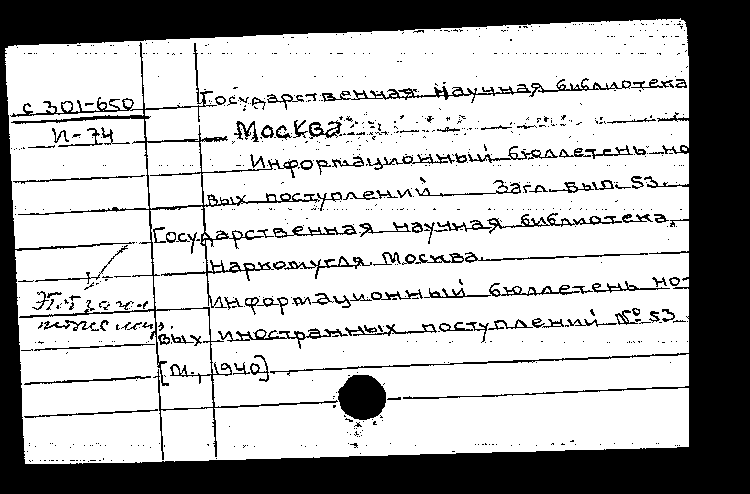 с 301-650
И-74
Государственная научная библиотека
Москва
Информационный бюллетень но
вых поступлений. Загл. вып. 53.
Государственная научная библиотека
Наркомугля. Москва.
Информационный бюллетень но-
вых иностранных поступлений № 53
[М., 1940].
Этот загол
тоже